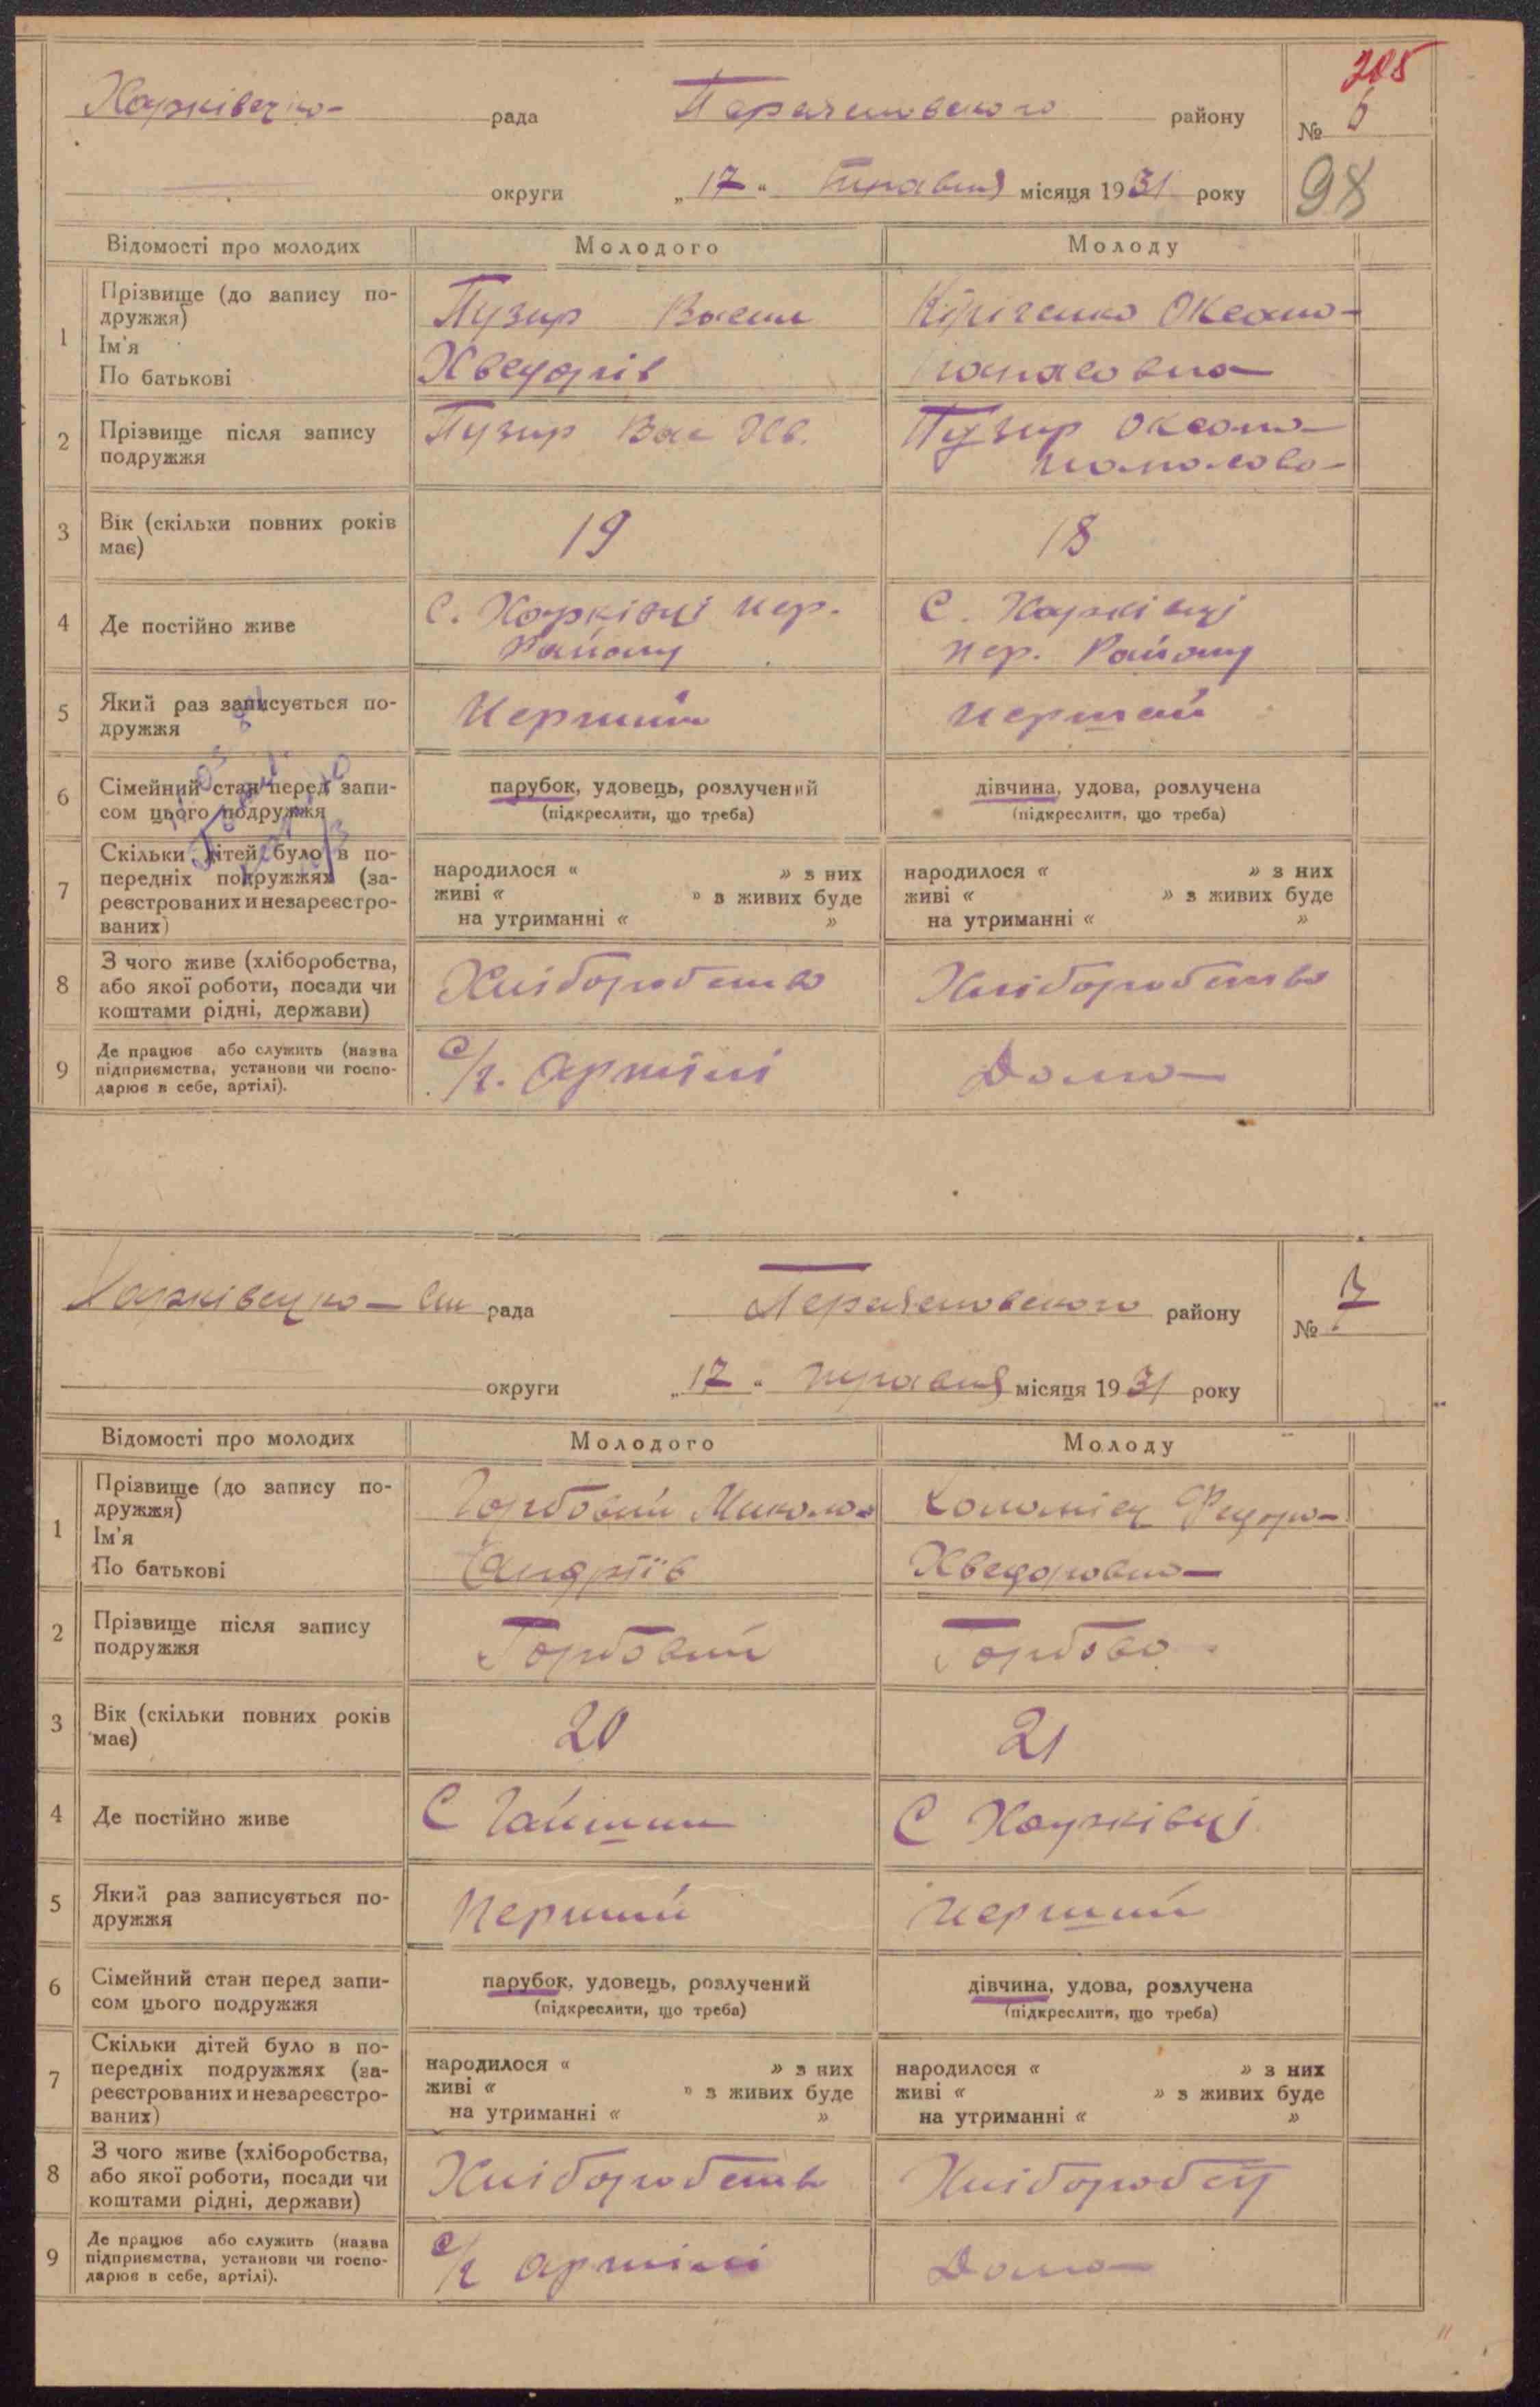 305
Харківецка рада Перячеловского району № 6
округи „17“ Травня місяця 1931 року 98
Відомості про молодих Молодого Молоду
1 Прізвище (до запису по-
дружжя)
Ім'я
По батькові
Пузир Васил
Хведорів
Кіріченко Оксана
Панасовна
2 Прізвище після запису
подружжя
Пузир Вас Хв.
Пузир Оксана
3 Вік (скільки повних років
має)
19
18
4 Де постійно живе
С. Харківці пер.
Району
С. Харківці
пер. Району
5 Який раз записується по-
дружжя
Перший
Перший
6 Сімейний стан перед запи-
сом цього подружжя
парубок, удовець, розлучений
(підкреслити, що треба)
дівчина, удова, розлучена
(підкреслити, що треба)
7 Скільки дітей було в по-
передніх подружжях (за-
реєстрованих и незареєстро-
ваних)
народилося « » з них
живі « » з живих буде
на утриманні « »
народилося « » з них
живі « » з живих буде
на утриманні « »
8 З чого живе (хліборобства,
або якої роботи, посади чи
коштами рідні, держави)
Хліборобство
Хліборобство
9 Де працює або служить (назва
підприємства, установи чи госпо-
дарює в себе, артілі).
С/г. артілі
Дома
Харківецка рада району № 7
округи „17“ травня місяця 1931 року
Відомості про молодих Молодого Молоду
1 Прізвище (до запису по-
дружжя)
Ім'я
По батькові
Горбовий Микола
Андріїв
Коломієц Федора
Хведоровна
2 Прізвище після запису
подружжя
Горбовий
Горбова
3 Вік (скільки повних років
має)
20
21
4 Де постійно живе
С Гайшин
С Харківці
5 Який раз записується по-
дружжя
Перший
Перший
6 Сімейний стан перед запи-
сом цього подружжя
парубок, удовець, розлучений
(підкреслити, що треба)
дівчина, удова, розлучена
(підкреслити, що треба)
7 Скільки дітей було в по-
передніх подружжях (за-
реєстрованих и незареєстро-
ваних)
народилося « » з них
живі « » з живих буде
на утриманні « »
народилося « » з них
живі « » з живих буде
на утриманні « »
8 З чого живе (хліборобства,
або якої роботи, посади чи
коштами рідні, держави)
Хліборобств
Хліборобст
9 Де працює або служить (назва
підприємства, установи чи госпо-
дарює в себе, артілі).
с/г артілі
Дома